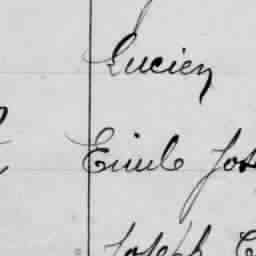 Lucien
Emile Jos
Joseph